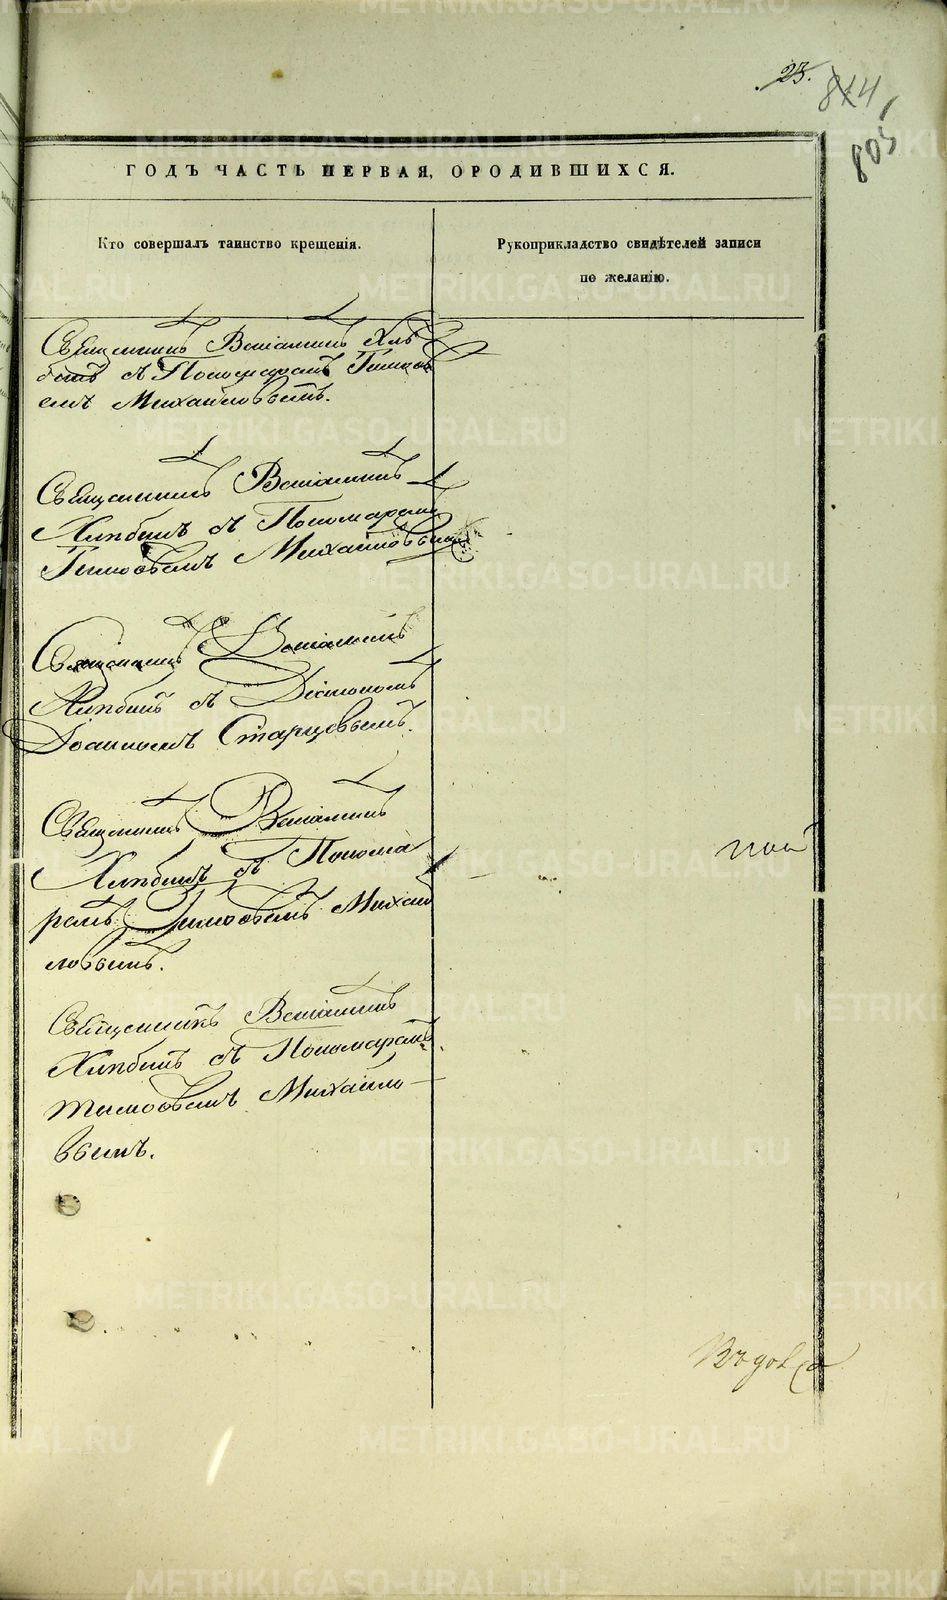 23.
814
805
ГОДЪ ЧАСТЬ ПЕРВАЯ, ОРОДИВШИХСЯ.
Кто совершалъ таинство крещенія.
Рукоприкладство свидѣтелей записи
по желанію.
Священникъ Веніаминъ Хлѣ
бинъ съ Пономаремъ Тимоѳе
емъ Михайловымъ.
Священникъ Веніаминъ
Хлѣбинъ съ Пономаремъ
Тимоѳеемъ Михайловымъ
Священникъ Веніаминъ
Хлѣбинъ съ Діакономъ
Іоанномъ Старцовымъ.
Священникъ Веніаминъ
Хлѣбинъ съ Понома
ремъ Тимоѳеемъ Михай
ловымъ.
Священникъ Веніаминъ
Хлѣбинъ съ Пономаремъ
Тимоѳеемъ Михайло
вымъ.
METRIKI.GASO-URAL.RU